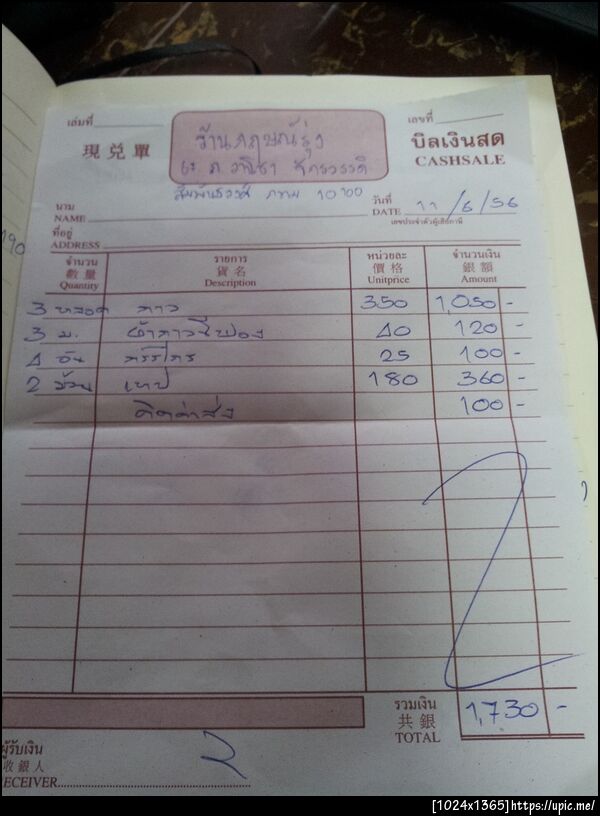 เล่มที่
เลขที่
現兌單
บิลเงินสด
CASHSALE
ร้านกฤษณ์รุ่ง
สัมพันธวงศ์ กทม 10100
นาม
NAME
วันที่
DATE 11/6/56
เลขประจำตัวผู้เสียภาษี
ที่อยู่
ADDRESS
190
จำนวน รายการ หน่วยละ จำนวนเงิน
數量 貨名 價格 銀額
Quantity Description Unitprice Amount
3 หลอด กาว 350 1,050 -
3 ม. 40 120 -
4 อัน กรรไกร 25 100 -
2 ม้วน เทป 180 360 -
คิดค่าส่ง 100 -
รวมเงิน
共銀
TOTAL 1,730 -
ผู้รับเงิน
收銀人
RECEIVER
[1024x1365]https://upic.me/